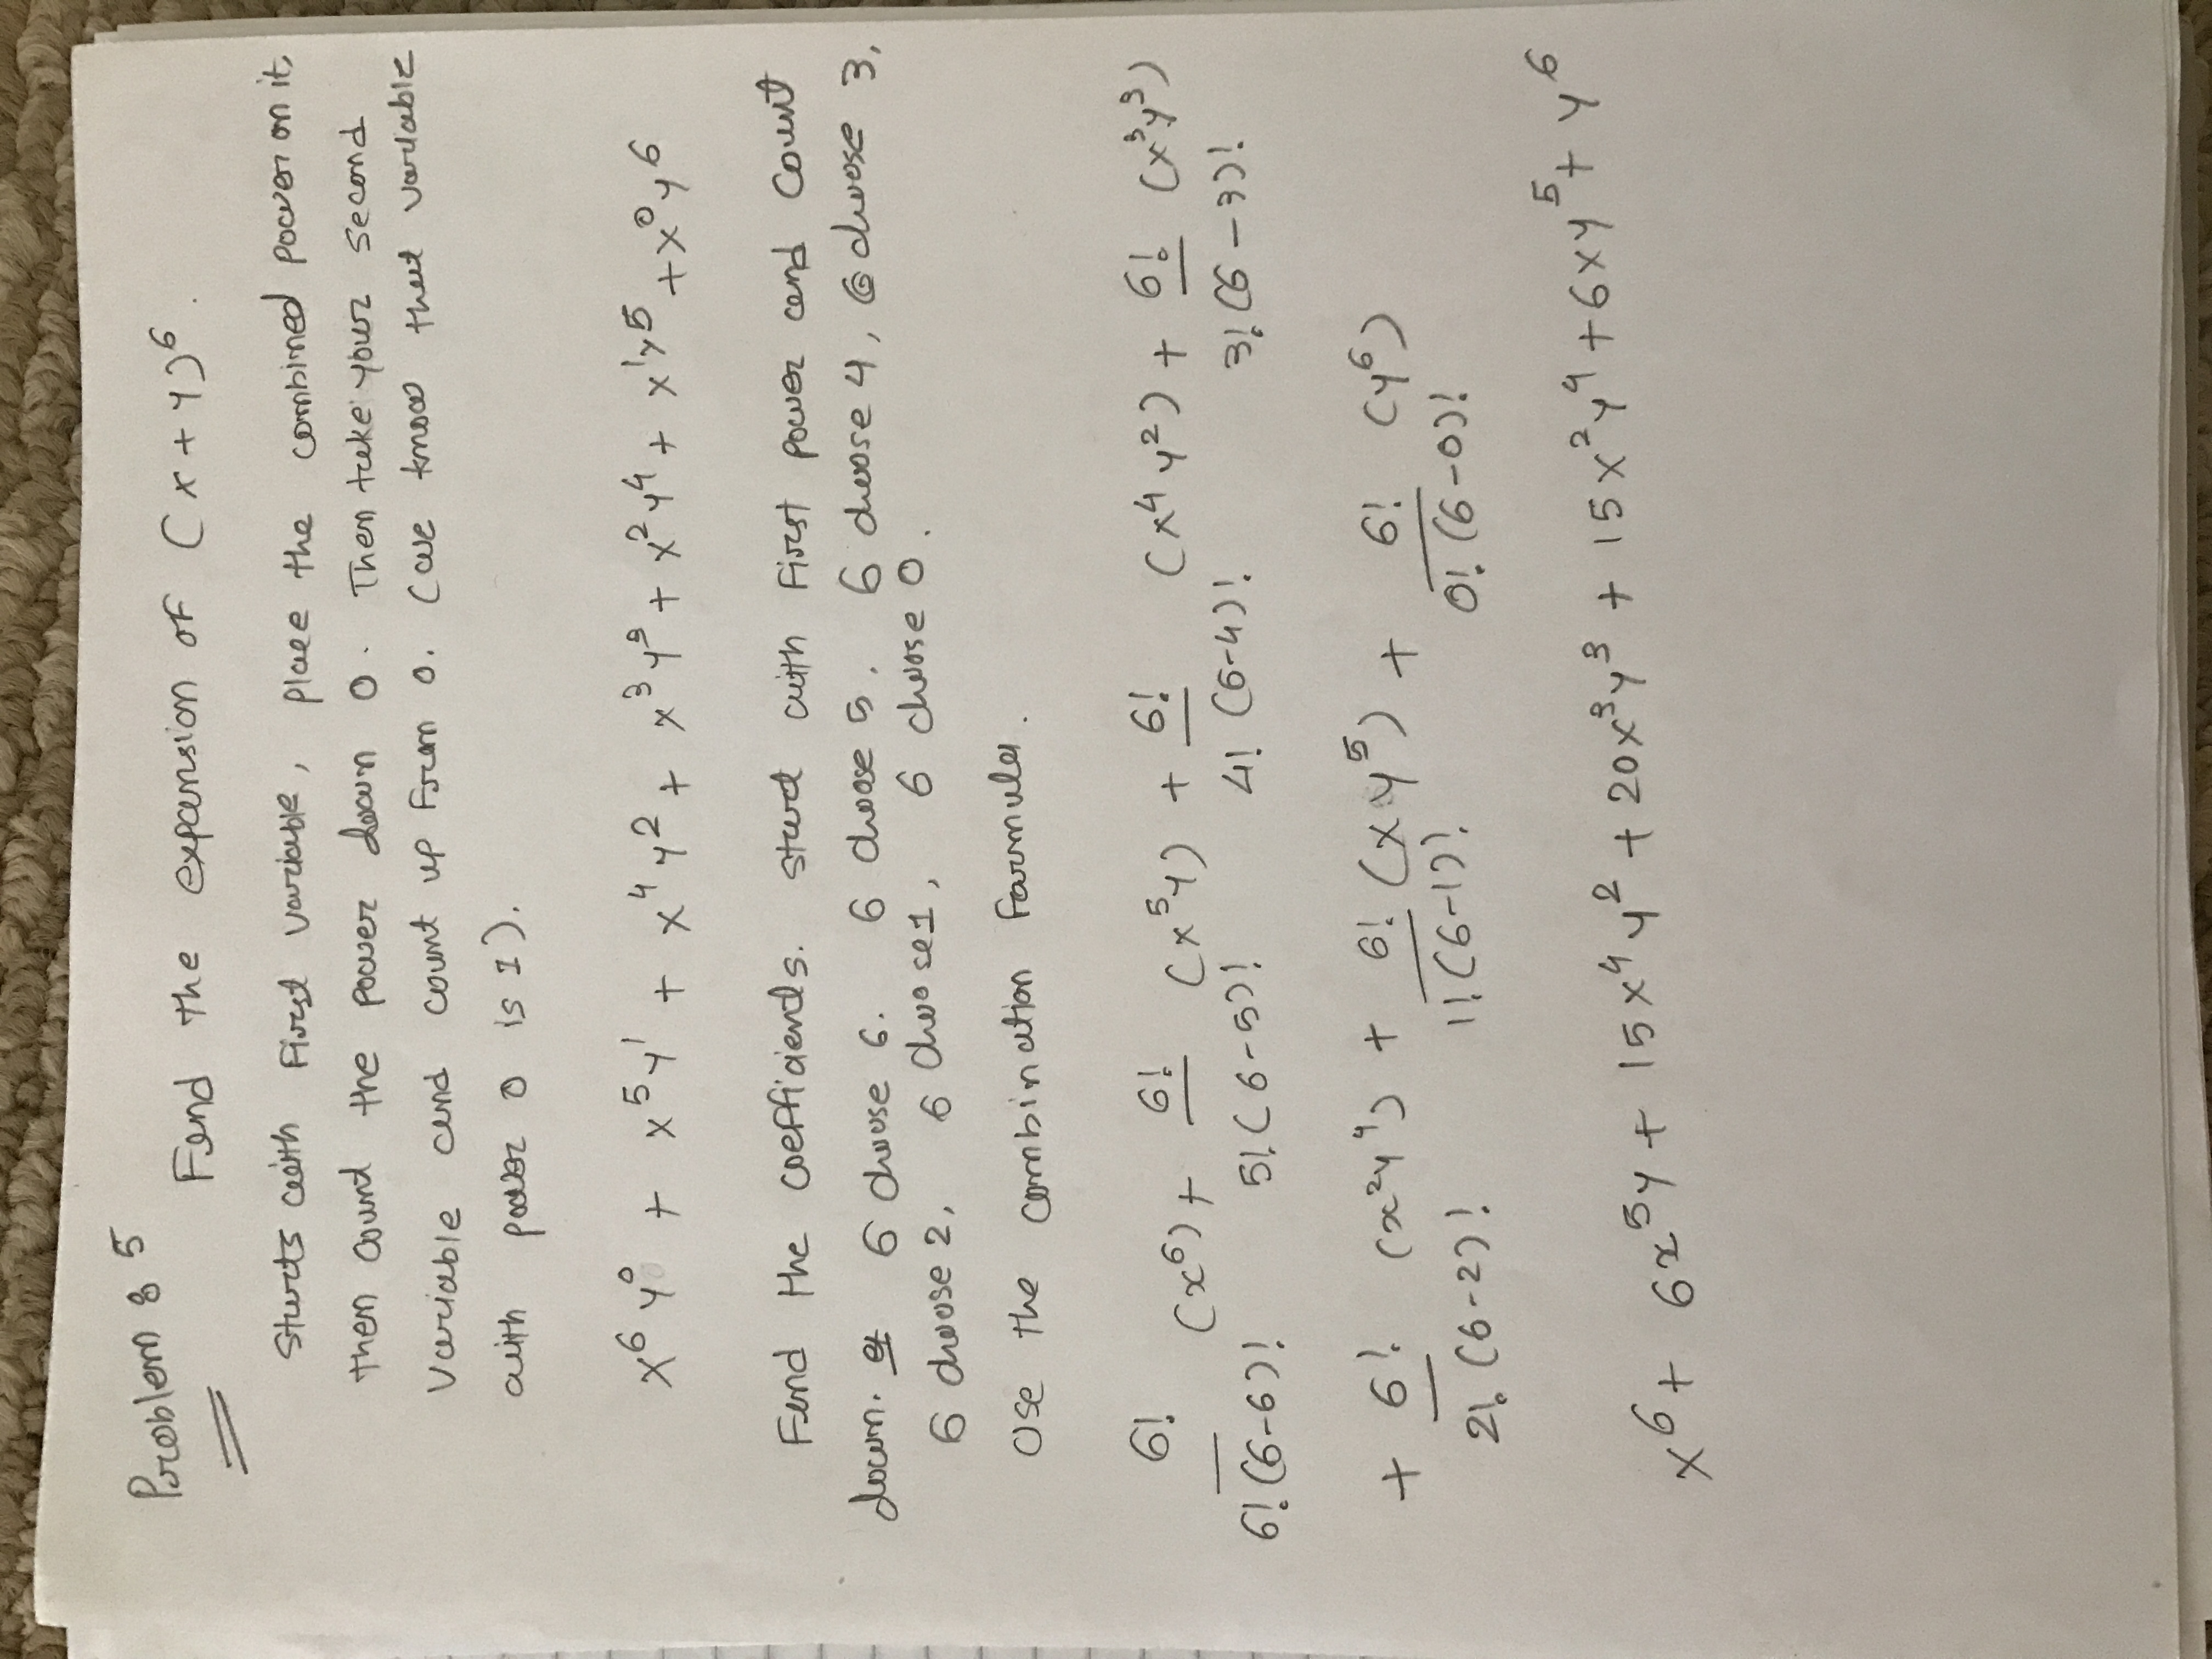 Problem : 5
Find the expansion of (x + y)⁶.
Starts with first variable, place the combined power on it,
then count the power down 0. Then take your second
variable and count up from 0. (we know that variable
with power 0 is 1).
x⁶y⁰ + x⁵y¹ + x⁴y² + x³y³ + x²y⁴ + x¹y⁵ + x⁰y⁶
Find the coefficients. Start with first power and count
down. 6 choose 6. 6 choose 5, 6 choose 4, 6 choose 3,
6 choose 2, 6 choose 1, 6 choose 0.
Use the combination formula.
6!/6!(6-6)! (x⁶) + 6!/5!(6-5)! (x⁵y) + 6!/4!(6-4)! (x⁴y²) + 6!/3!(6-3)! (x³y³)
+ 6!/2!(6-2)! (x²y⁴) + 6!/1!(6-1)! (xy⁵) + 6!/0!(6-0)! (y⁶)
x⁶ + 6x⁵y + 15x⁴y² + 20x³y³ + 15x²y⁴ + 6xy⁵ + y⁶